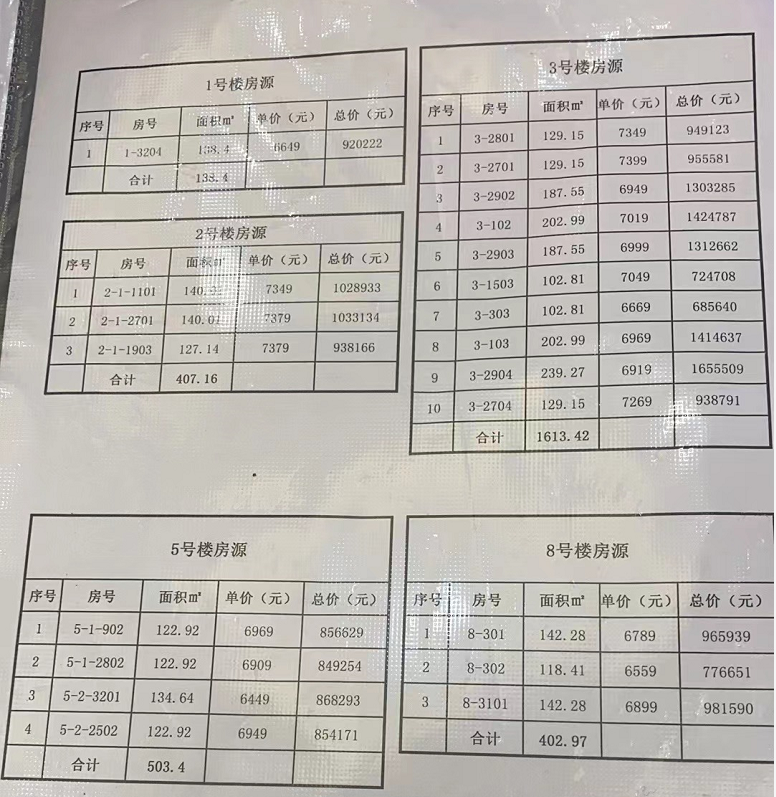 1号楼房源
序号 房号 面积㎡ 单价（元） 总价（元）
1 1-3204 138.4 6649 920222
合计 138.4
2号楼房源
序号 房号 面积㎡ 单价（元） 总价（元）
1 2-1-1101 140. 7349 1028933
2 2-1-2701 140.01 7379 1033134
3 2-1-1903 127.14 7379 938166
合计 407.16
3号楼房源
序号 房号 面积㎡ 单价（元） 总价（元）
1 3-2801 129.15 7349 949123
2 3-2701 129.15 7399 955581
3 3-2902 187.55 6949 1303285
4 3-102 202.99 7019 1424787
5 3-2903 187.55 6999 1312662
6 3-1503 102.81 7049 724708
7 3-303 102.81 6669 685640
8 3-103 202.99 6969 1414637
9 3-2904 239.27 6919 1655509
10 3-2704 129.15 7269 938791
合计 1613.42
5号楼房源
序号 房号 面积㎡ 单价（元） 总价（元）
1 5-1-902 122.92 6969 856629
2 5-1-2802 122.92 6909 849254
3 5-2-3201 134.64 6449 868293
4 5-2-2502 122.92 6949 854171
合计 503.4
8号楼房源
序号 房号 面积㎡ 单价（元） 总价（元）
1 8-301 142.28 6789 965939
2 8-302 118.41 6559 776651
3 8-3101 142.28 6899 981590
合计 402.97